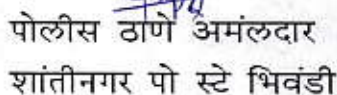 पोलीस ठाणे अमंलदार
शांतीनगर पो स्टे भिवंडी